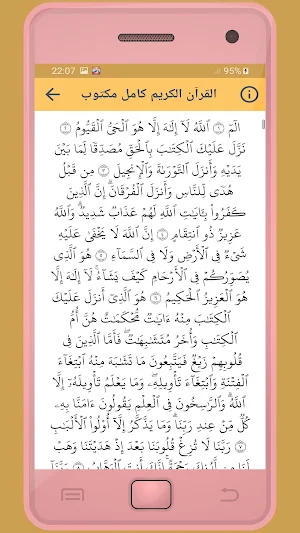 22:07 95%
القرآن الكريم كامل مكتوب
الٓمٓ ١ ٱللَّهُ لَآ إِلَٰهَ إِلَّا هُوَ ٱلۡحَيُّ ٱلۡقَيُّومُ ٢
نَزَّلَ عَلَيۡكَ ٱلۡكِتَٰبَ بِٱلۡحَقِّ مُصَدِّقٗا لِّمَا بَيۡنَ
يَدَيۡهِ وَأَنزَلَ ٱلتَّوۡرَىٰةَ وَٱلۡإِنجِيلَ ٣ مِن قَبۡلُ
هُدٗى لِّلنَّاسِ وَأَنزَلَ ٱلۡفُرۡقَانَۗ إِنَّ ٱلَّذِينَ
كَفَرُواْ بِـَٔايَٰتِ ٱللَّهِ لَهُمۡ عَذَابٞ شَدِيدٞۗ وَٱللَّهُ
عَزِيزٞ ذُو ٱنتِقَامٍ ٤ إِنَّ ٱللَّهَ لَا يَخۡفَىٰ عَلَيۡهِ
شَيۡءٞ فِي ٱلۡأَرۡضِ وَلَا فِي ٱلسَّمَآءِ ٥ هُوَ ٱلَّذِي
يُصَوِّرُكُمۡ فِي ٱلۡأَرۡحَامِ كَيۡفَ يَشَآءُۚ لَآ إِلَٰهَ إِلَّا
هُوَ ٱلۡعَزِيزُ ٱلۡحَكِيمُ ٦ هُوَ ٱلَّذِيٓ أَنزَلَ عَلَيۡكَ
ٱلۡكِتَٰبَ مِنۡهُ ءَايَٰتٞ مُّحۡكَمَٰتٌ هُنَّ أُمُّ
ٱلۡكِتَٰبِ وَأُخَرُ مُتَشَٰبِهَٰتٞۖ فَأَمَّا ٱلَّذِينَ فِي
قُلُوبِهِمۡ زَيۡغٞ فَيَتَّبِعُونَ مَا تَشَٰبَهَ مِنۡهُ ٱبۡتِغَآءَ
ٱلۡفِتۡنَةِ وَٱبۡتِغَآءَ تَأۡوِيلِهِۦۖ وَمَا يَعۡلَمُ تَأۡوِيلَهُۥٓ إِلَّا
ٱللَّهُۗ وَٱلرَّٰسِخُونَ فِي ٱلۡعِلۡمِ يَقُولُونَ ءَامَنَّا بِهِۦ
كُلّٞ مِّنۡ عِندِ رَبِّنَاۗ وَمَا يَذَّكَّرُ إِلَّآ أُوْلُواْ ٱلۡأَلۡبَٰبِ
٧ رَبَّنَا لَا تُزِغۡ قُلُوبَنَا بَعۡدَ إِذۡ هَدَيۡتَنَا وَهَبۡ
لَنَا مِن لَّدُنكَ رَحۡمَةًۚ إِنَّكَ أَنتَ ٱلۡوَهَّابُ